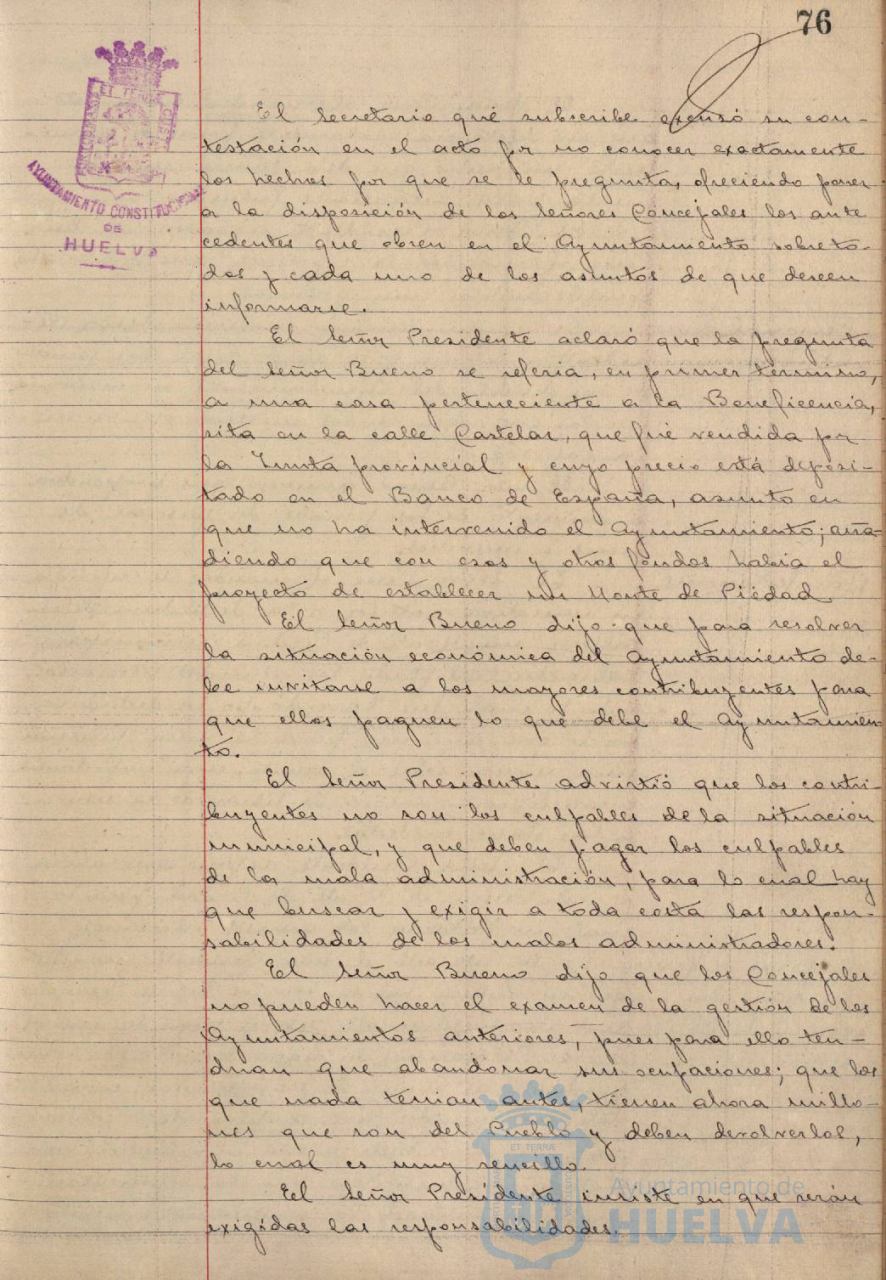 76
ET TERRÆ
AYUNTAMIENTO CONSTITUCIONAL
DE
HUELVA
El secretario que subscribe excusó su con-
testación en el acto por no conocer exactamente
los hechos por que se le pregunta, ofreciendo poner
a la disposición de los Señores Concejales los ante
cedentes que obren en el Ayuntamiento sobre to-
dos y cada uno de los asuntos de que deseen
informarse.
El Señor Presidente aclaró que la pregunta
del Señor Bueno se referia, en primer termino,
a una casa perteneciente a la Beneficencia,
sita en la calle Castelar, que fué vendida por
la Junta provincial y cuyo precio está deposi-
tado en el Banco de España, asunto en
que no ha intervenido el Ayuntamiento; aña-
diendo que con esos y otros fondos habia el
proyecto de establecer un Monte de Piedad.
El Señor Bueno dijo que para resolver
la situación económica del Ayuntamiento de-
be invitarse a los mayores contribuyentes para
que ellos paguen lo que debe el Ayuntamien-
to.
El Señor Presidente advirtió que los contri-
buyentes no son los culpables de la situación
municipal, y que deben pagar los culpables
de la mala administración, para lo cual hay
que buscar y exigir a toda costa las respon-
sabilidades de los malos administradores.
El Señor Bueno dijo que los Concejales
no pueden hacer el examen de la gestión de los
Ayuntamientos anteriores, pues para ello ten-
drian que abandonar sus ocupaciones; que los
que nada tenian antes, tienen ahora millo-
nes que son del Pueblo y deben devolverlos,
lo cual es muy sencillo.
El Señor Presidente insiste en que serán
exigidas las responsabilidades.
ET TERRA
Ayuntamiento de
HUELVA